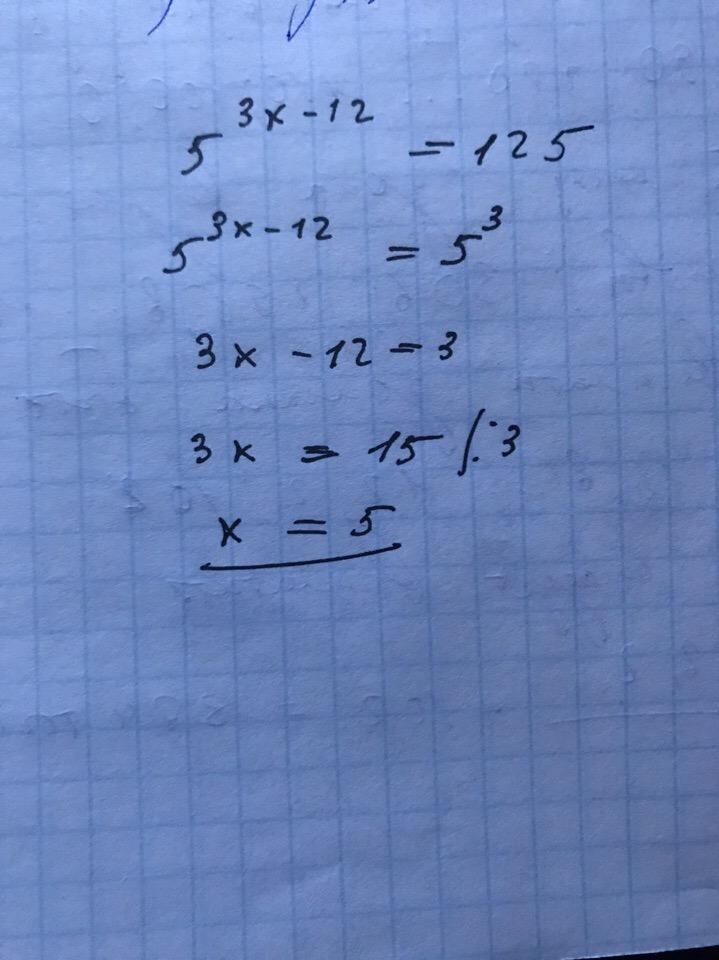 5^{3x-12} = 125
5^{3x-12} = 5^3
3x - 12 = 3
3x = 15 /:3
x = 5